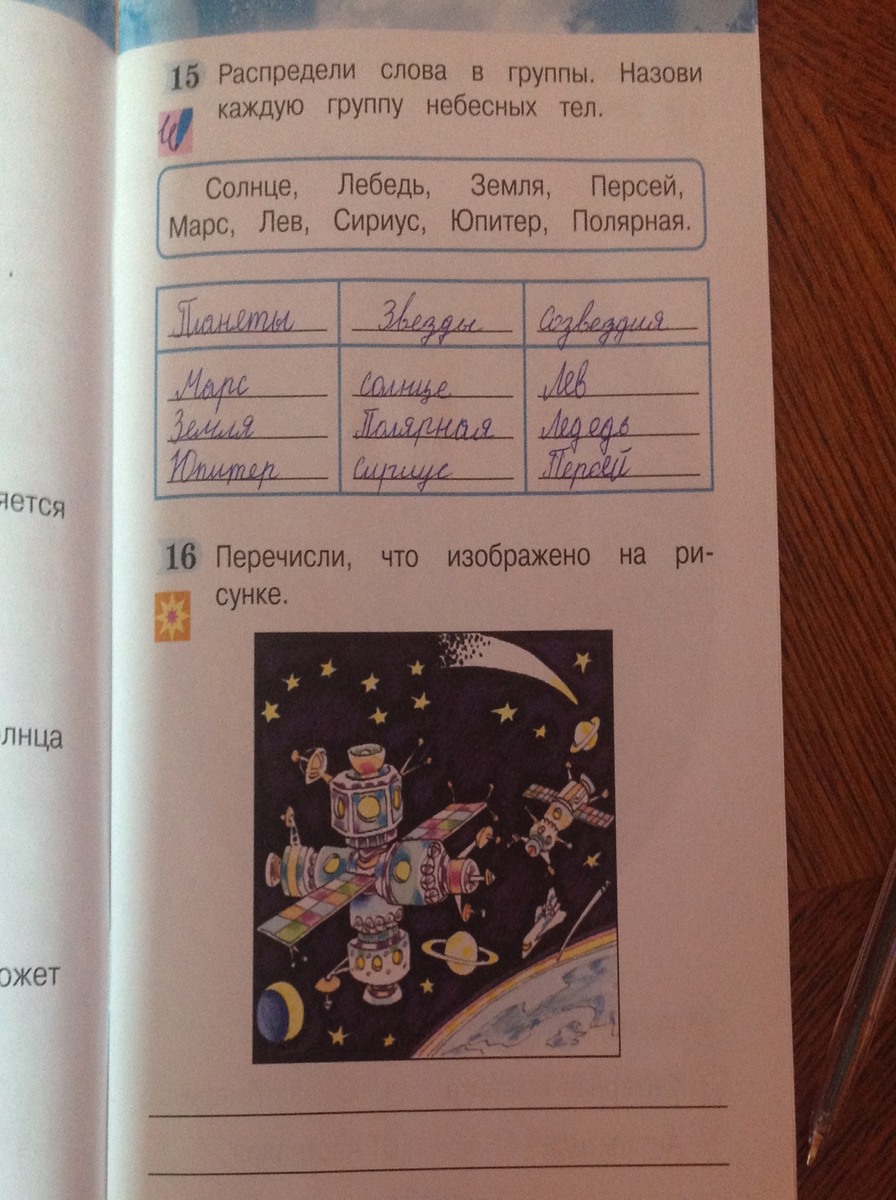 15 Распредели слова в группы. Назови
каждую группу небесных тел.
Солнце, Лебедь, Земля, Персей,
Марс, Лев, Сириус, Юпитер, Полярная.
Планеты Звезды Созвездия
Марс солнце Лев
Земля Полярная Ледедь
Юпитер сириус Персей
16 Перечисли, что изображено на ри-
сунке.
яется
олнца
ожет